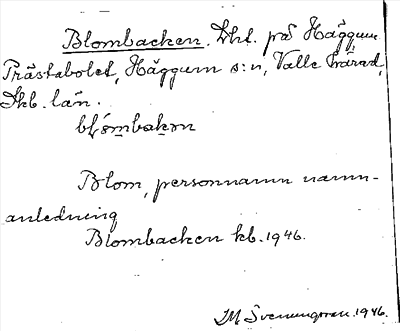 Blombacken. Lht. på Häggum
Prästabolet, Häggum s:n, Valle härad,
Skb. län.
Blom, personnamn namn-
anledning
Blombacken kb. 1946.
IM Svenungsson. 1946.